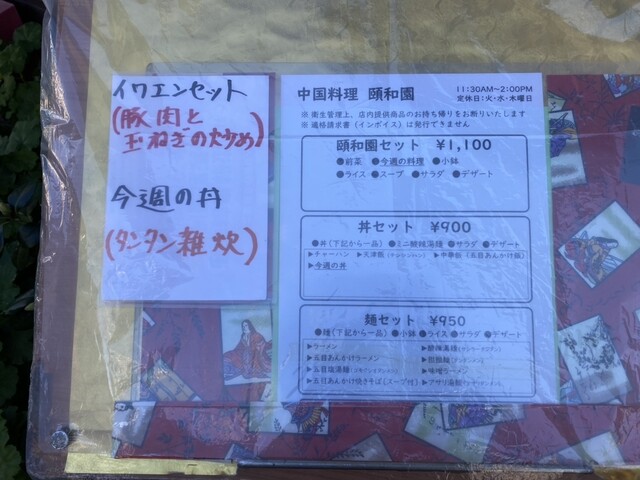 イワエンセット
(豚肉と
玉ねぎの炒め)
今週の丼
(タンタン雑炊)
中国料理 頤和園
11:30AM~2:00PM
定休日:火・水・木曜日
※ 衛生管理上、店内提供商品のお持ち帰りをお断りいたします
※ 適格請求書(インボイス)は発行できません
頤和園セット ¥1,100
●前菜 ●今週の料理 ●小鉢
●ライス ●スープ ●サラダ ●デザート
丼セット ¥900
●丼(下記から一品) ●ミニ酸辣湯麺 ●サラダ ●デザート
▶チャーハン ▶天津飯 ▶中華飯(五目あんかけ飯)
▶今週の丼
麺セット ¥950
●麺(下記から一品) ●小鉢 ●ライス ●サラダ ●デザート
▶ラーメン ▶酸辣湯麺
▶五目あんかけラーメン ▶担担麺
▶五目塩湯麺 ▶味噌ラーメン
▶五目あんかけ焼きそば(スープ付) ▶アサリ湯麺